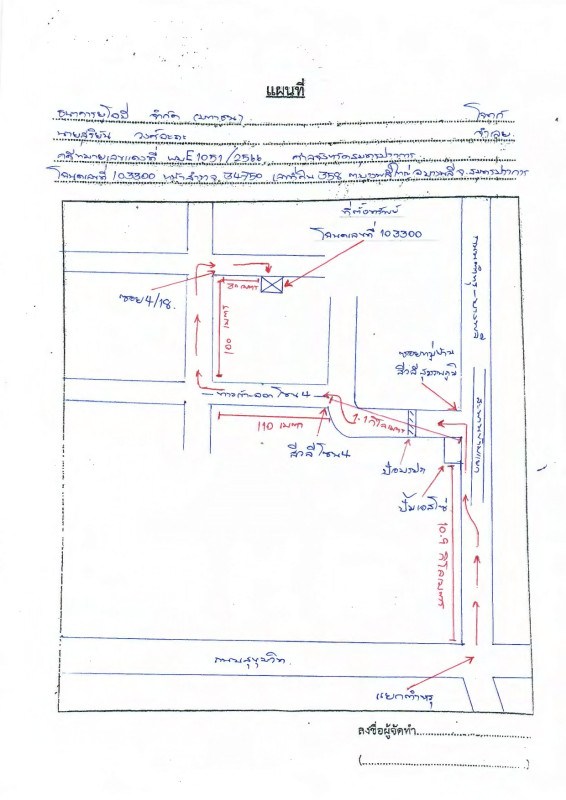 แผนที่
ธนาคารยูโอบี จำกัด (มหาชน) โจทก์
นายสุริยัน จำเลย
คดีหมายเลขแดงที่ ผบE1051/2566 ศาลจังหวัดสมุทรปราการ
โฉนดเลขที่ 103300 หน้าสำรวจ 34750 เลขที่ดิน 358 ต.บางพลีใหญ่ อ.บางพลี จ.สมุทรปราการ
ที่ตั้งทรัพย์
โฉนดเลขที่ 103300
ซอย 4/18
100 เมตร
ถนนตำหรุ - บางพลี
ซอยหมู่บ้าน
สีวลี สุวรรณภูมิ
ทางเข้าออก โซน 4
1.1 กิโลเมตร
110 เมตร
สีวลี โซน 4
ป้อมรปภ
ปั๊มเอสโซ่
10.9 กิโลเมตร
ถนนสุขุมวิท
แยกตำหรุ
ลงชื่อผู้จัดทำ
(..........)